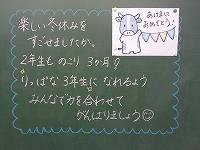 楽しい冬休みを
すごせましたか。
2年生も のこり 3か月!
りっぱな3年生に なれるよう
みんなで力を合わせて
がんばりましょう
あけまして
おめでとう!